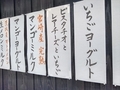 いちごヨーグルト
ピスタチオと
レアチーズといちご
宮崎産完熟
マンゴーミルク
マンゴーヨーグルト